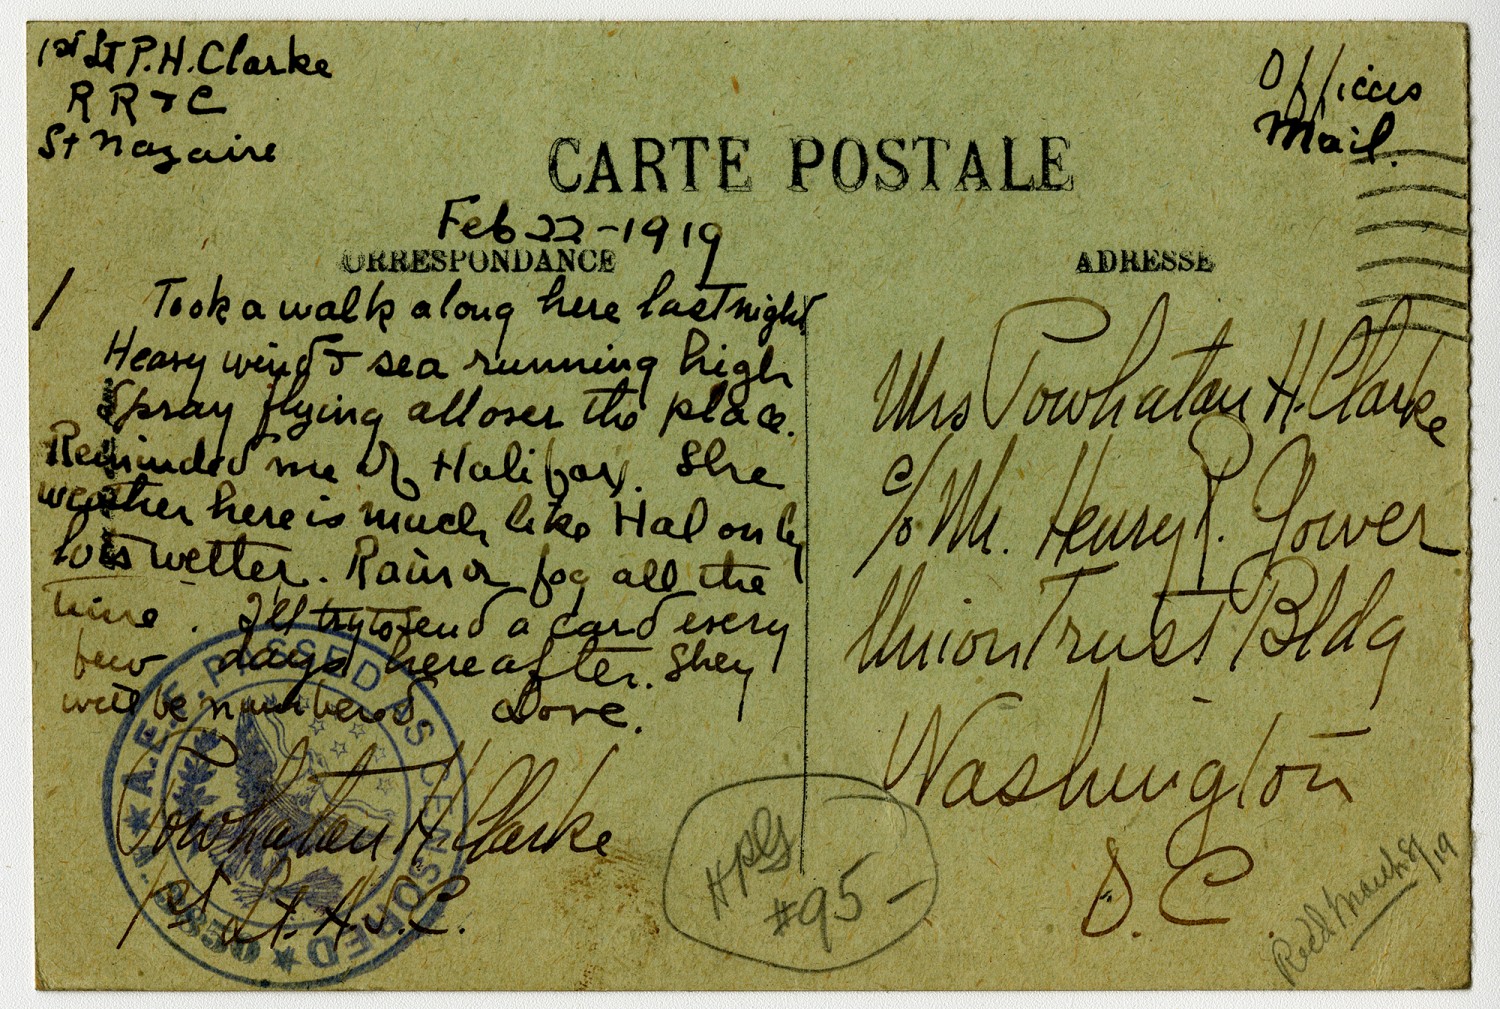 1st Lt P.H. Clarke
R R & C
St Nazaire
Officers
Mail.
CARTE POSTALE
Feb 22-1919
CORRESPONDANCE
ADRESSE
1
Took a walk along here last night
Heavy wind & sea running high
Spray flying all over the place.
Reminded me of Halifax. The
weather here is much like Hal only
lots wetter. Rain or fog all the
time. I'll try to send a card every
few days hereafter. They
will be numbered Love.
Powhatan H Clarke
1st Lt. A S. C.
A.E.F. PASSED AS CENSORED
Mrs Powhatan H. Clarke
c/o Mr. Henry P. Gower
Union Trust Bldg
Washington
D. C.
HPG
#95-
Recd March 8/19